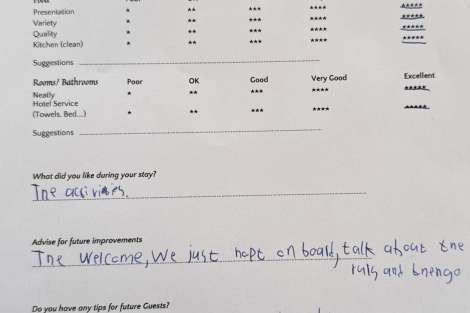 Presentation * ** *** **** *****
Variety * ** *** **** *****
Quality * ** *** **** *****
Kitchen (clean) * ** *** **** *****
Suggestions
Rooms/ Bathrooms Poor OK Good Very Good Excellent
Neatly * ** *** **** *****
Hotel Service
(Towels, Bed...) * ** *** **** *****
Suggestions
What did you like during your stay?
The activities.
Advise for future improvements
The Welcome, We just hopt on board, talk about the
ruls and
Do you have any tips for future Guests?